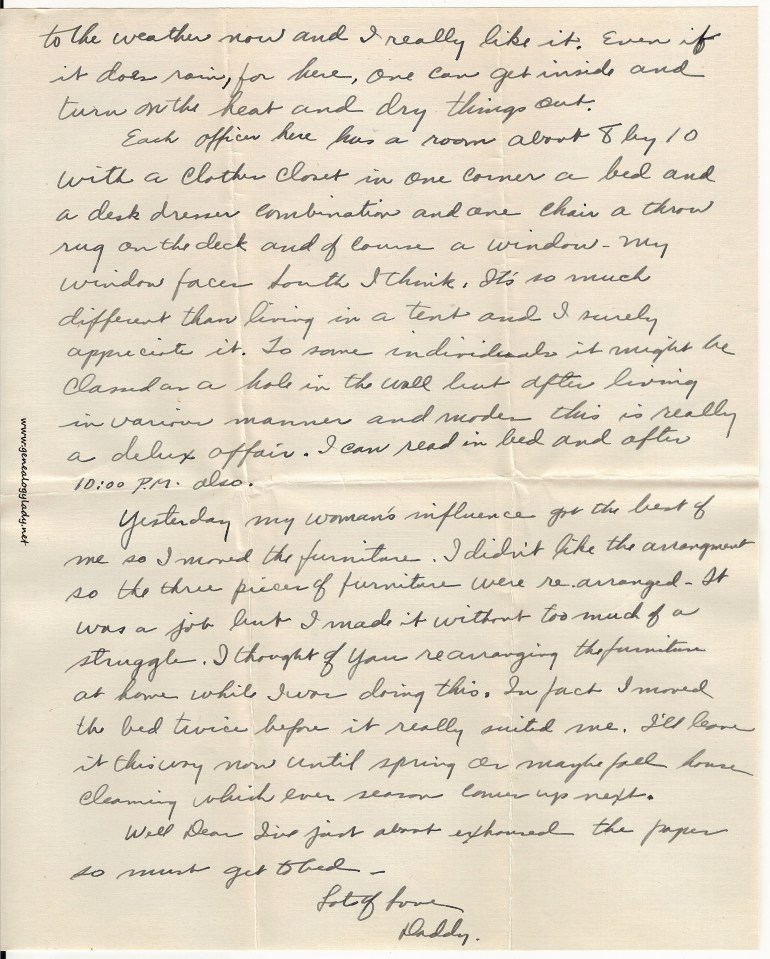 to the weather now and I really like it. Even if
it does rain, for here, one can get inside and
turn on the heat and dry things out.
Each officer here has a room about 8 by 10
with a clothes closet in one corner a bed and
a desk dresser combination and one chair a throw
rug on the deck and of course a window - My
window faces South I think. It's so much
different than living in a tent and I surely
appreciate it. To some individuals it might be
classed as a hole in the wall but after living
in various manner and modes this is really
a delux affair. I can read in bed and after
10:00 P.M. also.
www.genealogylady.net
Yesterday my woman's influence got the best of
me so I moved the furniture. I didn't like the arrangment
so the three pieces of furniture were re.arranged - It
was a job but I made it without too much of a
struggle. I thought of you rearranging the furniture
at home while I was doing this. In fact I moved
the bed twice before it really suited me. I'll leave
it this way now until spring or maybe fall house
cleaning which ever season comes up next.
Well Dear I've just about exhaused the paper
so must get to bed -
Lots of Love
Daddy.